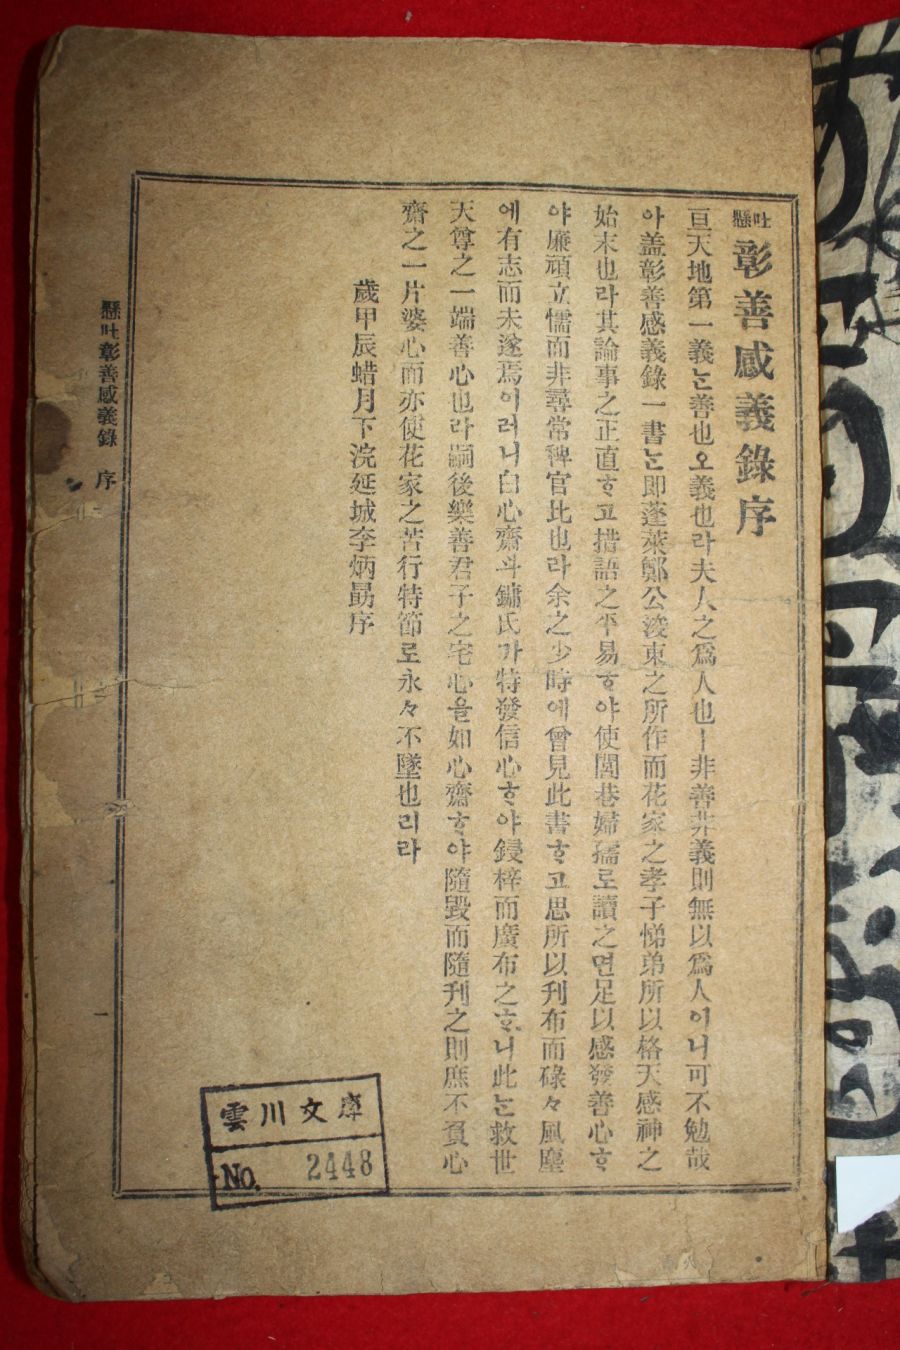 懸吐 彰善感義錄序
亘天地第一義는善也오義也라夫人之爲人也ㅣ非善非義則無以爲人이니可不勉哉
아盖彰善感義錄一書는即蓬萊鄭公浚東之所作而花家之孝子悌弟所以格天感神之
始末也라其論事之正直ᄒᆞ고措語之平易ᄒᆞ야使閭巷婦孺로讀之면足以感發善心ᄒᆞ
야廉頑立懦而非尋常稗官比也라余之少時에曾見此書ᄒᆞ고思所以刋布而碌々風塵
에有志而未遂焉이러니白心齋斗鏞氏가特發信心ᄒᆞ야鋟梓而廣布之ᄒᆞ니此는救世
天尊之一端善心也라嗣後樂善君子之宅心을如心齋ᄒᆞ야隨毀而隨刋之則庶不負心
齋之一片婆心而亦使花家之苦行特節로永々不墜也리라
歲甲辰蜡月下浣延城李炳勗序
懸吐彰善感義錄 序
雲川文庫
No. 2448